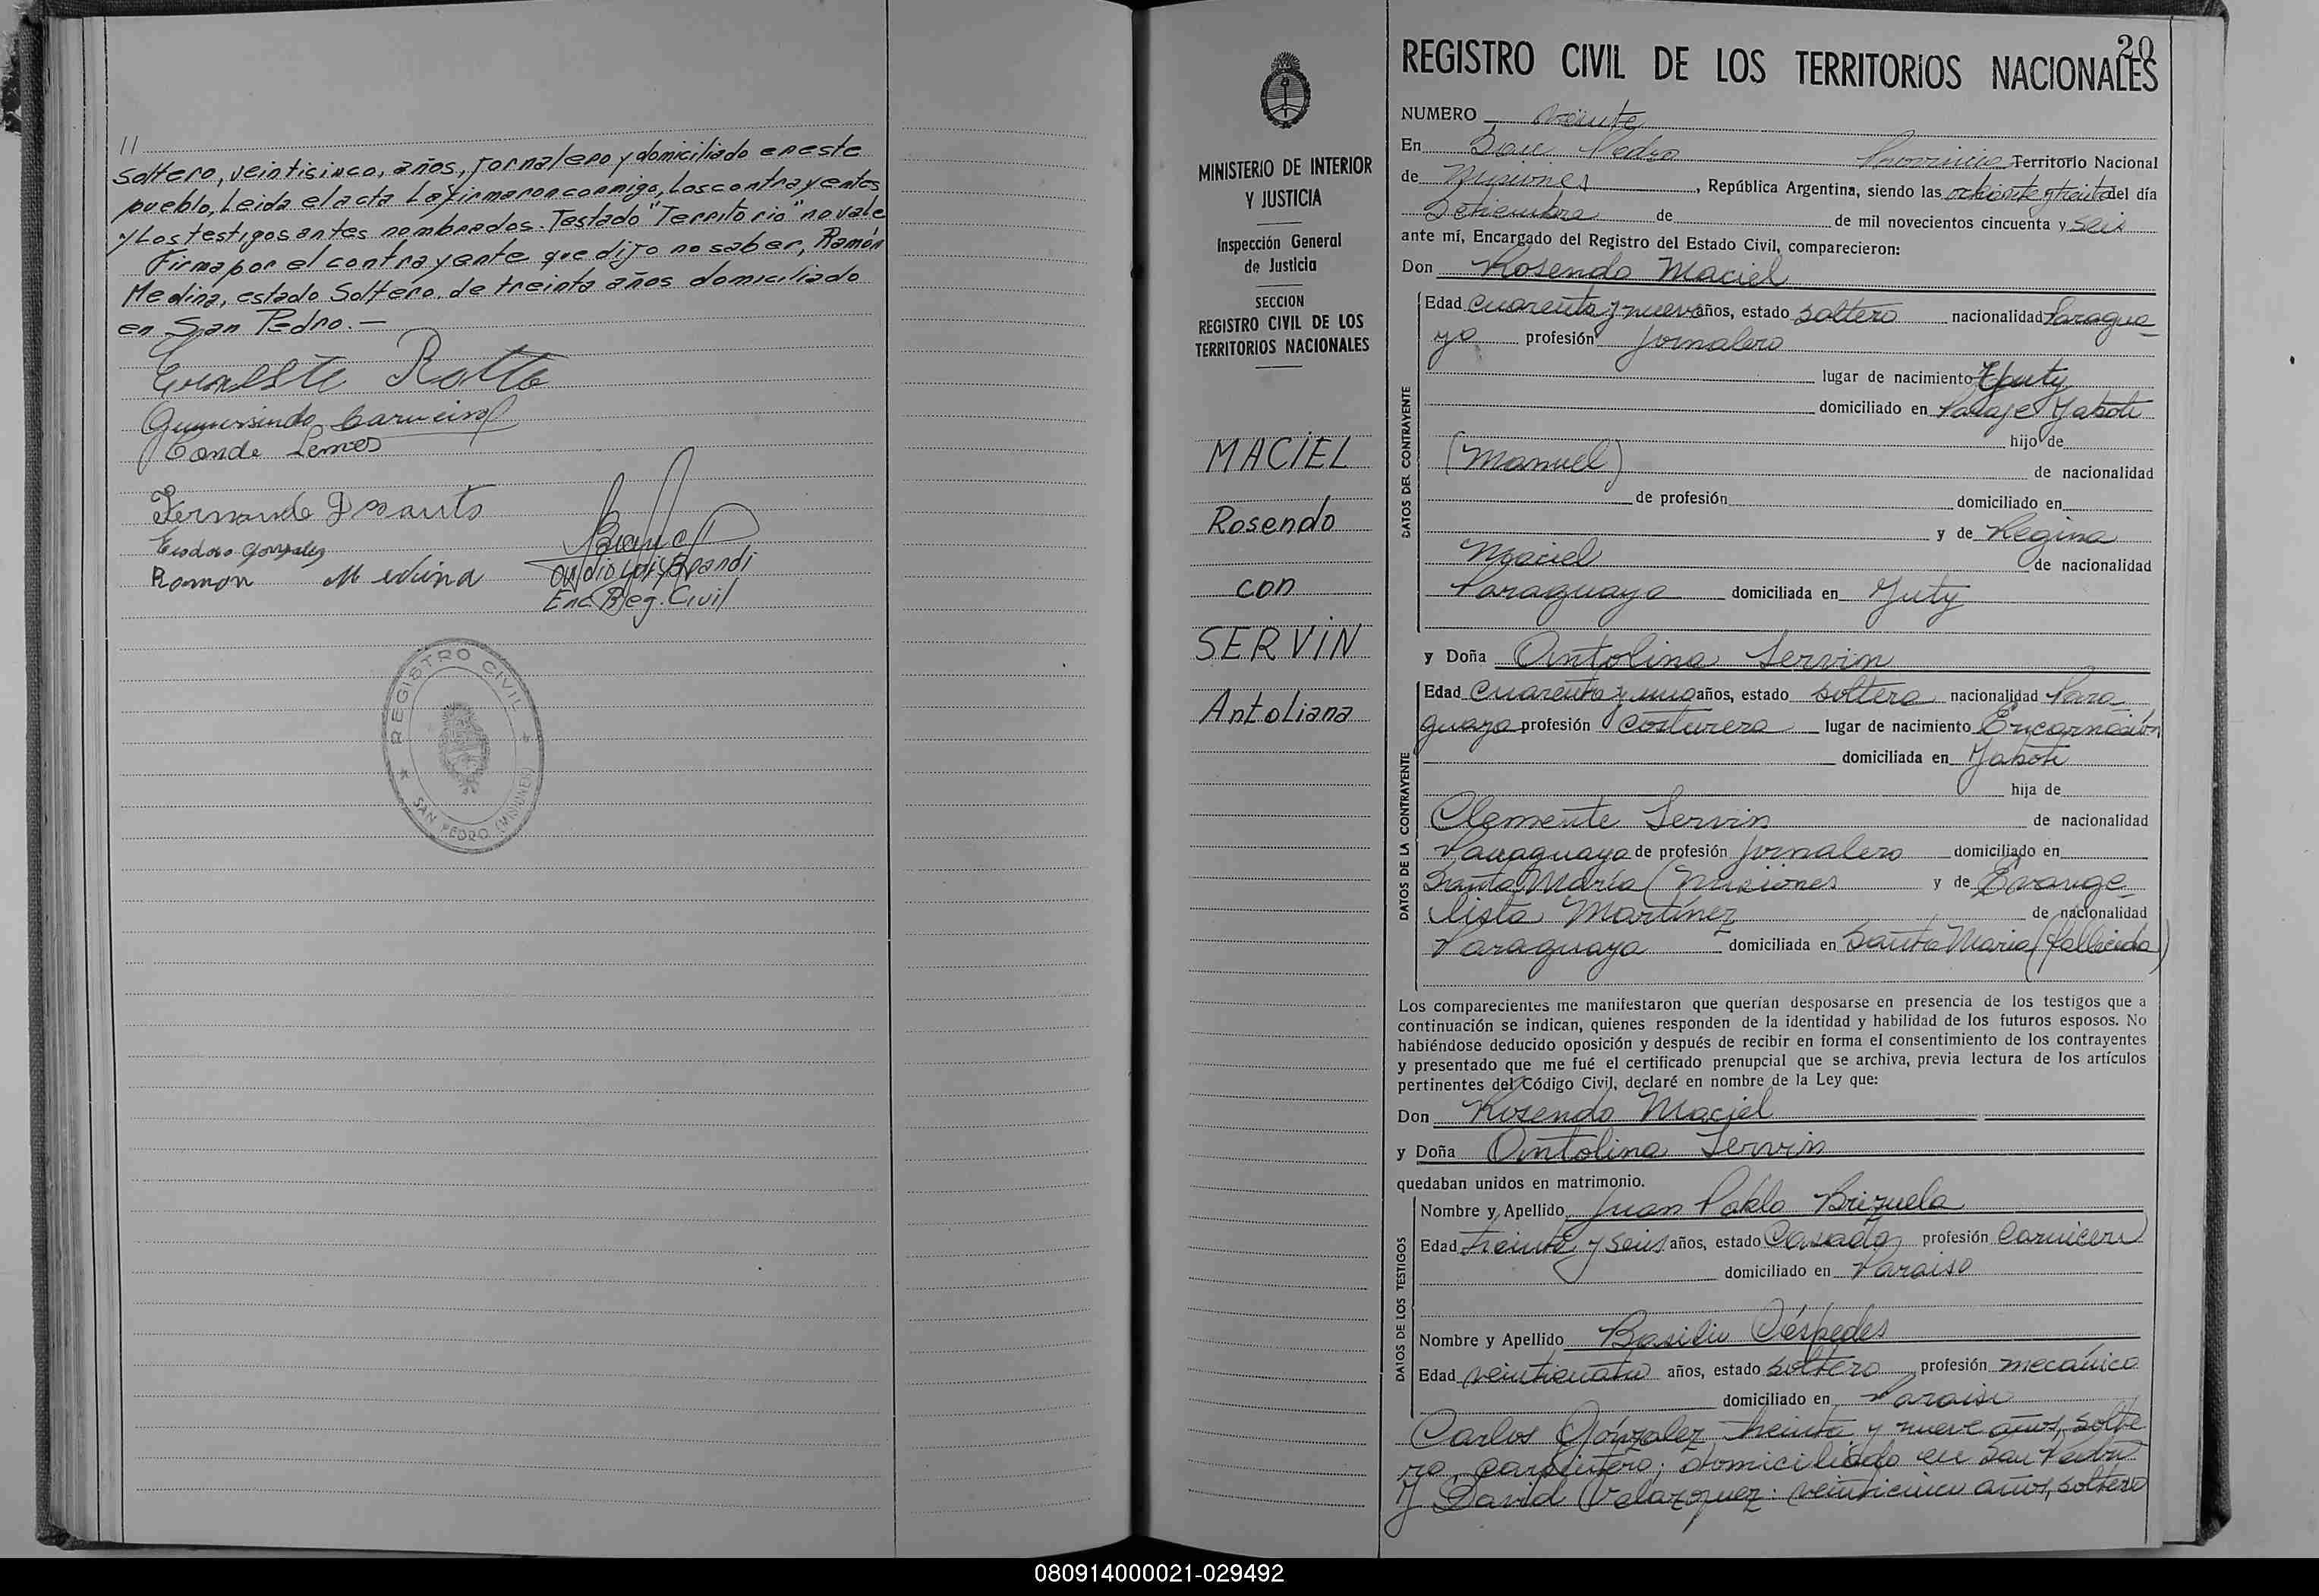 11
soltero, veinticinco, años, jornalero y domiciliado en este
pueblo, Leida el acta La firmaron conmigo, Los contrayentes
y Los testigos antes nombrados. Testado "Territorio" no vale
Firma por el contrayente que dijo no saber, Ramón
Medina, estado Soltero. de treinta años domiciliado
en San Pedro. —
Gumersindo Carneiro
Conde Lemes
Fernando Dosanto
Teodoro Gonzalez
Ramon Medina
Enc Reg. Civil
REGISTRO CIVIL
SAN PEDRO (MISIONES)
MINISTERIO DE INTERIOR
Y JUSTICIA
Inspección General
de Justicia
SECCION
REGISTRO CIVIL DE LOS
TERRITORIOS NACIONALES
MACIEL
Rosendo
con
SERVIN
Antoliana
20
REGISTRO CIVIL DE LOS TERRITORIOS NACIONALES
NUMERO veinte
En San Pedro Provincia Territorio Nacional
de Misiones, República Argentina, siendo las del día
Setiembre de de mil novecientos cincuenta y seis
ante mí, Encargado del Registro del Estado Civil, comparecieron:
Don Rosendo Maciel
DATOS DEL CONTRAYENTE
Edad cuarenta y nueve años, estado soltero nacionalidad Paragua-
yo profesión jornalero
lugar de nacimiento Yuty
domiciliado en Paraje Yaboti
hijo de
(Manuel) de nacionalidad
de profesión domiciliado en
y de Regina
Maciel de nacionalidad
Paraguaya domiciliada en Yuty
y Doña Antolina Servin
DATOS DE LA CONTRAYENTE
Edad cuarenta y uno años, estado soltera nacionalidad Para
guaya profesión costurera lugar de nacimiento Encarnación
domiciliada en Yaboti
hija de
Clemente Servin de nacionalidad
Paraguaya de profesión jornalero domiciliado en
Santa María (Misiones y de Evange-
lista Martínez de nacionalidad
Paraguaya domiciliada en Santa Maria (fallecida)
Los comparecientes me manifestaron que querían desposarse en presencia de los testigos que a
continuación se indican, quienes responden de la identidad y habilidad de los futuros esposos. No
habiéndose deducido oposición y después de recibir en forma el consentimiento de los contrayentes
y presentado que me fué el certificado prenupcial que se archiva, previa lectura de los artículos
pertinentes del Código Civil, declaré en nombre de la Ley que:
Don Rosendo Maciel
y Doña Antolina Servin
quedaban unidos en matrimonio.
DATOS DE LOS TESTIGOS
Nombre y Apellido Juan Pablo Brizuela
Edad treinta y seis años, estado Casado profesión Carnicero
domiciliado en Paraiso
Nombre y Apellido Basilio Céspedes
Edad veinticuatro años, estado soltero profesión mecánico
domiciliado en Paraiso
Carlos González treinta y nueve años, solte
ro, carpintero; domiciliado en San Pedro
y David Velazquez: veinticinco años, soltero
080914000021-029492